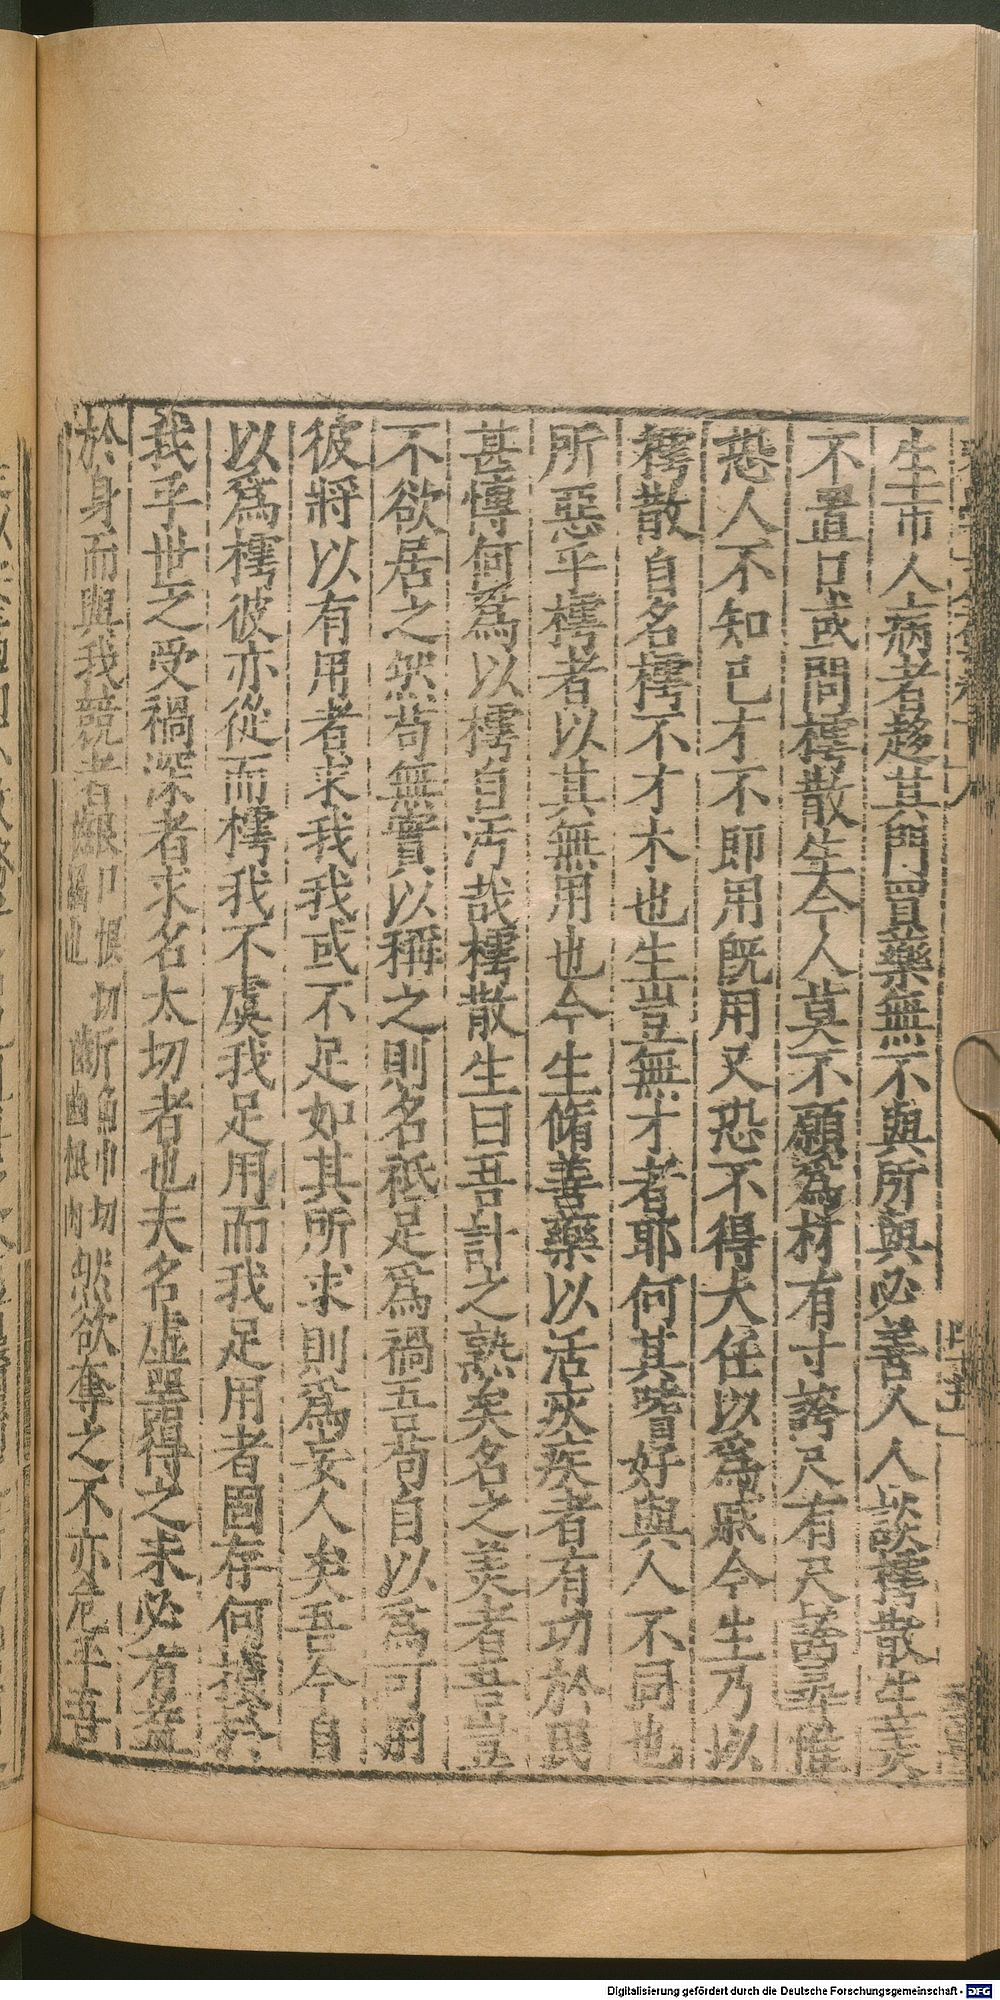 生市人病者趍其門買藥無不與所與必善久人談樗散生美
不置口或問樗散生今人莫不願爲材有寸誇尺有尺誇尋惟
恐人不知已才不即用旣用又恐不得大任以爲戚今生乃以
樗散自名樗不才木也生豈無才者耶何其嗜好與人不同也
所惡乎樗者以其無用也今生脩善藥以活疢疾者有功於民
甚慱何爲以樗自汚哉樗散生曰吾計之熟矣名之美者吾豈
不欲居之然苟無實以稱之則名衹足爲禍吾苟自以爲可用
彼將以有用者求我我或不足如其所求則爲妄人矣吾今自
以爲樗彼亦從而樗我不虞我足用而我足用者固存何損於
我乎世之受禍深者求名太切者也夫名虛器得之未必有益
於身而與我競者齦卩恨切齧也斷魚巾切齒根肉然欲奪之不亦危乎吾
Digitalisierung gefördert durch die Deutsche Forschungsgemeinschaft - DFG